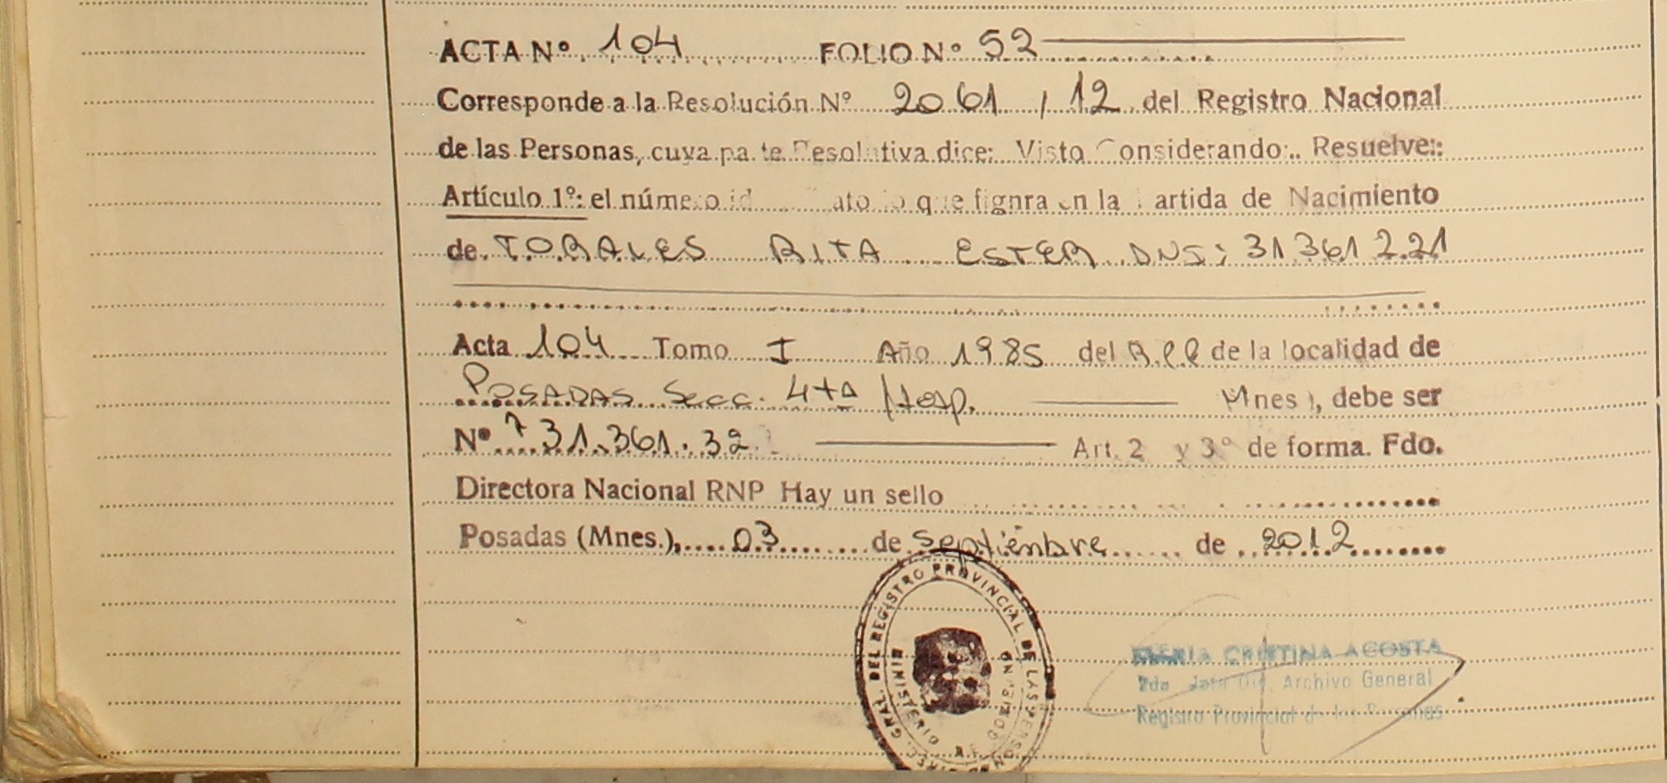 ACTA Nº 104 FOLIO Nº 52
Corresponde a la Resolución Nº 2061 / 12 del Registro Nacional
de las Personas, cuya pa te Resolutiva dice: Visto Considerando:. Resuelve::
Artículo 1º: el número id ato io que fignra en la artida de Nacimiento
de TORALES RITA ESTER DNI: 31361221
Acta 104 Tomo I Año 1985 del R.P.P de la localidad de
POSADAS Secc. 4ta / Hosp. Mnes ), debe ser
Nº 31.361.32 Art. 2 y 3º de forma. Fdo.
Directora Nacional RNP Hay un sello
Posadas (Mnes.), 03 de septiembre de 2012
GRAL. DEL REGISTRO PROVINCIAL DE LAS PERSONAS
MINISTERIO DE GOBIERNO
MARIA CRISTINA ACOSTA
2da Jefa Archivo General
Registro Provincial de las Personas